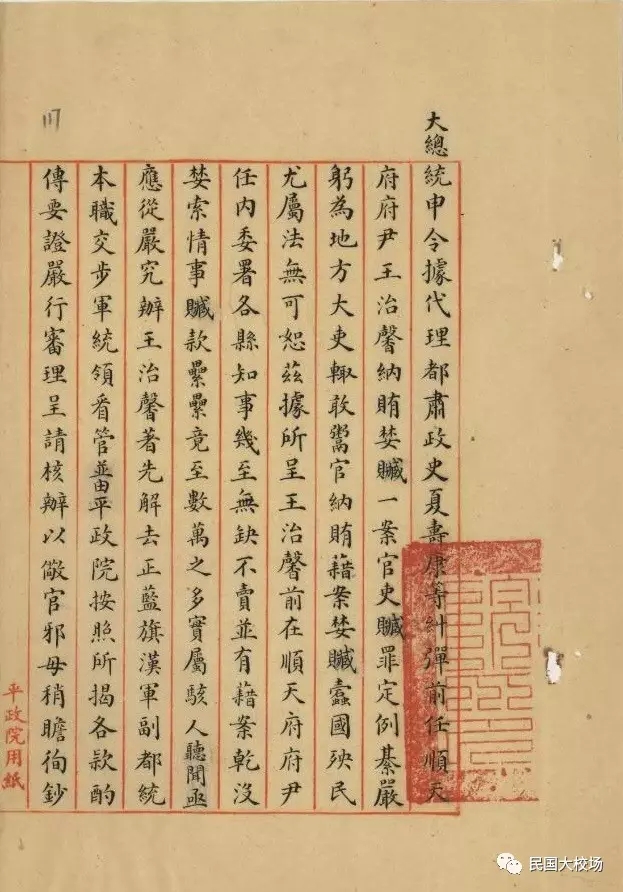 大總統申令據代理都肅政史夏壽康等糾彈前任順天
府府尹王治馨納賄婪贓一案官吏贓罪定例綦嚴
躬為地方大吏輒敢鬻官納賄藉案婪贓蠹國殃民
尤屬法無可恕茲據所呈王治馨前在順天府府尹
任內委署各縣知事幾至無缺不賣並有藉案乾沒
婪索情事贓款纍纍竟至數萬之多實屬駭人聽聞亟
應從嚴究辦王治馨著先解去正藍旗漢軍副都統
本職交步軍統領看管並由平政院按照所揭各款酌
傳要證嚴行審理呈請核辦以儆官邪毋稍瞻徇鈔
平政院用紙
民国大校场